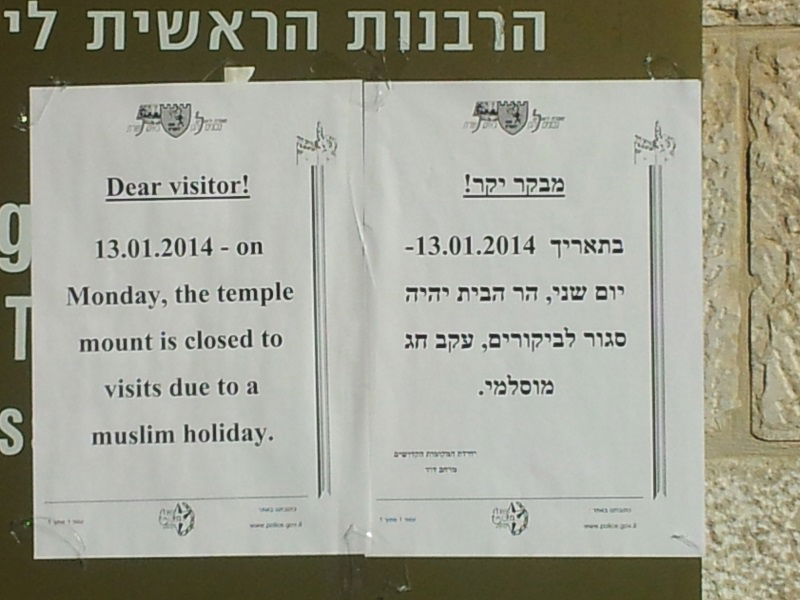 הרבנות הראשית לי
Dear visitor!
13.01.2014 - on
Monday, the temple
mount is closed to
visits due to a
muslim holiday.
www.police.gov.il
מבקר יקר!
בתאריך 13.01.2014-
יום שני, הר הבית יהיה
סגור לביקורים, עקב חג
מוסלמי.
יחידת המקומות הקדושים
מרחב דוד
www.police.gov.il
g
T
s